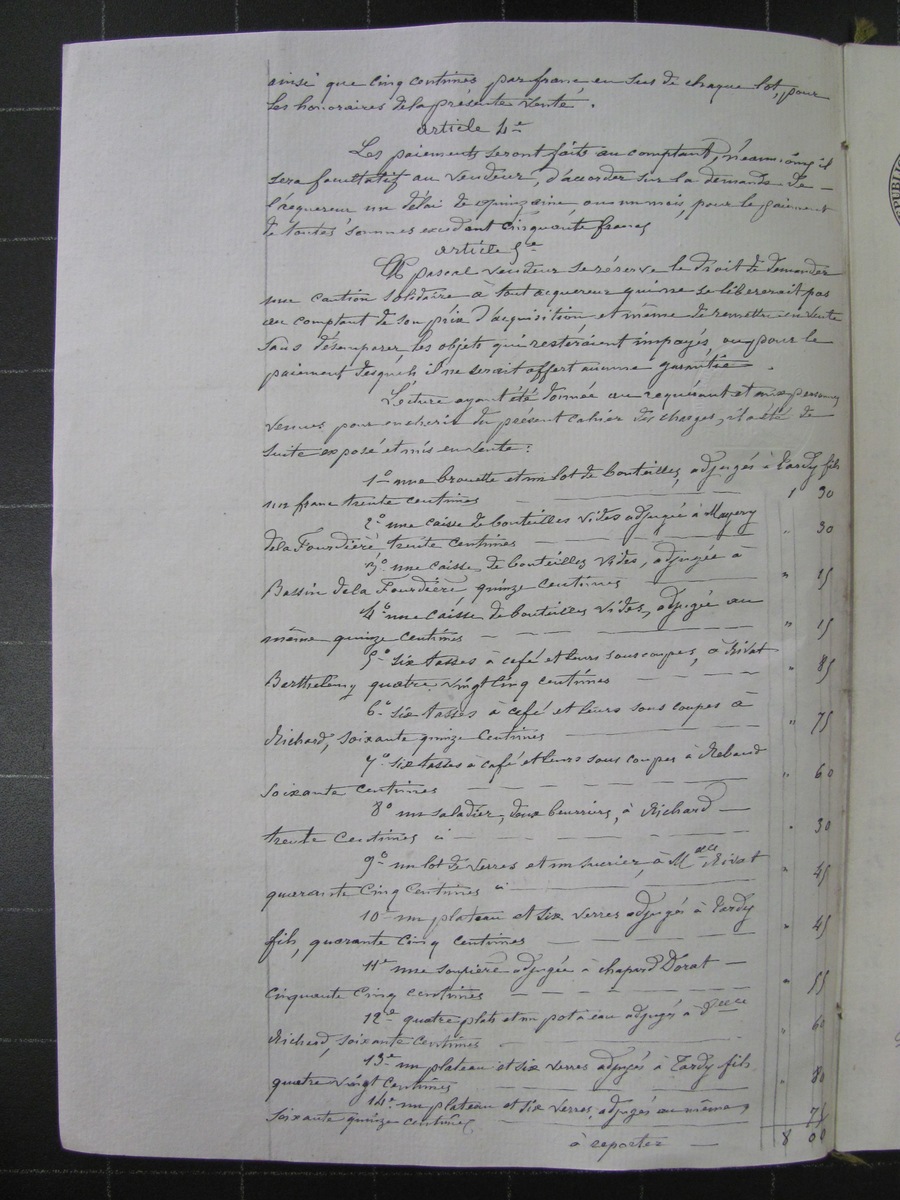 ainsi que cinq centimes par franc en sus de chaque lot, pour
les honoraires de la présente vente.
article 4e
Les paiements seront faits au comptant, néanmoins il
sera facultatif au vendeur, d'accorder sur la demande de
l'acquereur un délai de quinzaine, ou un mois, pour le paiement
de toutes sommes excedant cinquante francs
article 5e
Mr pascal vendeur se réserve le droit de demander
une caution solidaire à tout acquereur qui ne se libererait pas
au comptant de son prix d'acquisition et même de remettre en vente
sans désemparer les objets qui resteraient impayés ou pour le
paiement desquels il ne serait offert aucune garantie.
Lecture ayant été donnée au requérant et aux personnes
venues pour encherir du présent cahier des charges, il a été de
suite exposé et mis en vente :
1o une brouette et un lot de bouteilles, adjugés à Tardy fils
un franc trente centimes 1 30
2o une caisse de bouteilles vides adjugée à Mayery
de la Fourdière trente centimes " 30
3o une caisse de bouteilles vides, adjugée à
Bassin de la Fourdière quinze centimes " 15
4o une caisse de bouteilles vides, adjugée au
même quinze centimes " 15
5o six tasses à café et leurs sous coupes, à Rivat
Barthelemy quatre vingt cinq centimes " 85
6o six tasses à café et leurs sous coupes à
Richard, soixante quinze centimes " 75
7o six tasses à café et leurs sous coupes à Rebaud
soixante centimes " 60
8o un saladier, deux beurriers, à Richard
trente centimes ci " 30
9o un lot de verres et un sucrier, à Mme Rivat
quarante cinq centimes ci " 45
10o un plateau et six verres adjugés à Tardy
fils, quarante cinq centimes " 45
11o une soupière adjugée à chapard Dorat
cinquante cinq centimes " 55
12o quatre plats et un pot à eau adjugés à
Richard, soixante centimes " 60
13o un plateau et six verres adjugés à Tardy fils
quatre vingt centimes " 80
14o un plateau et six verres adjugés au même
soixante quinze centimes " 75
à reporter 8 00